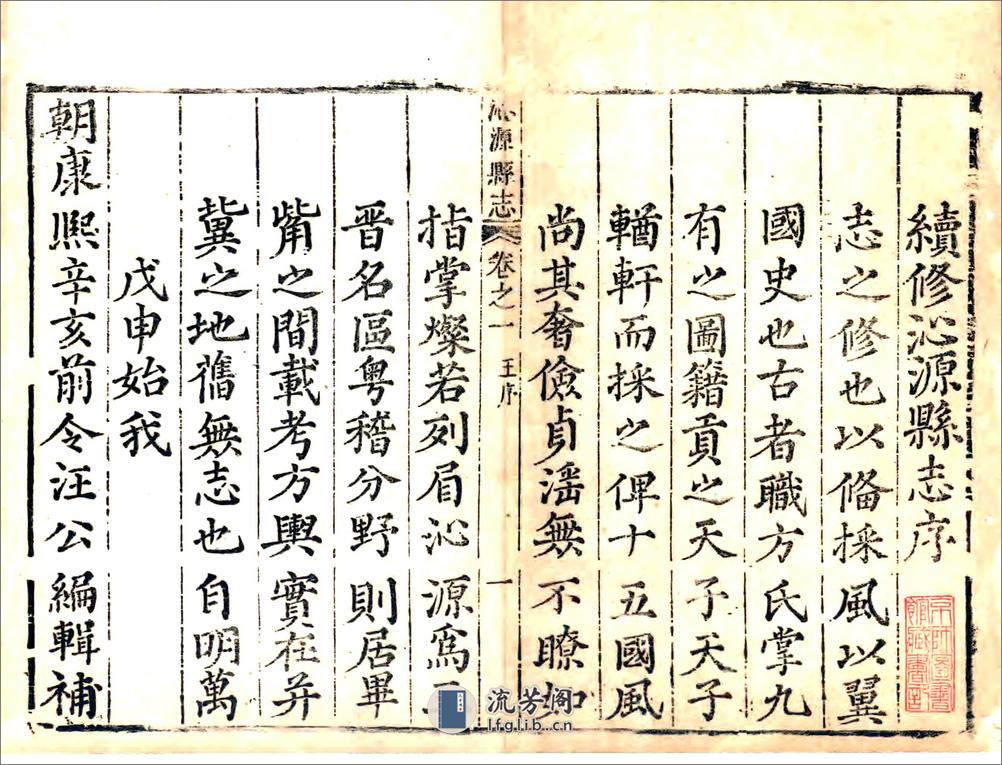 續修沁源縣志序
志之修也以俻採風以翼
國史也古者職方氏掌九
有之圖籍貢之天子天子
輶軒而採之俾十五國風
尚其奢儉貞淫無不瞭如
沁源縣志 卷之一 王序 一
指掌燦若列眉沁源爲
晋名區粤稽分野則居畢
觜之間載考方輿實在并
冀之地舊無志也自明萬
戊申始我
朝康熙辛亥前令汪公編輯補
京師圖書
館藏書記
流芳阁
lfglib.cn